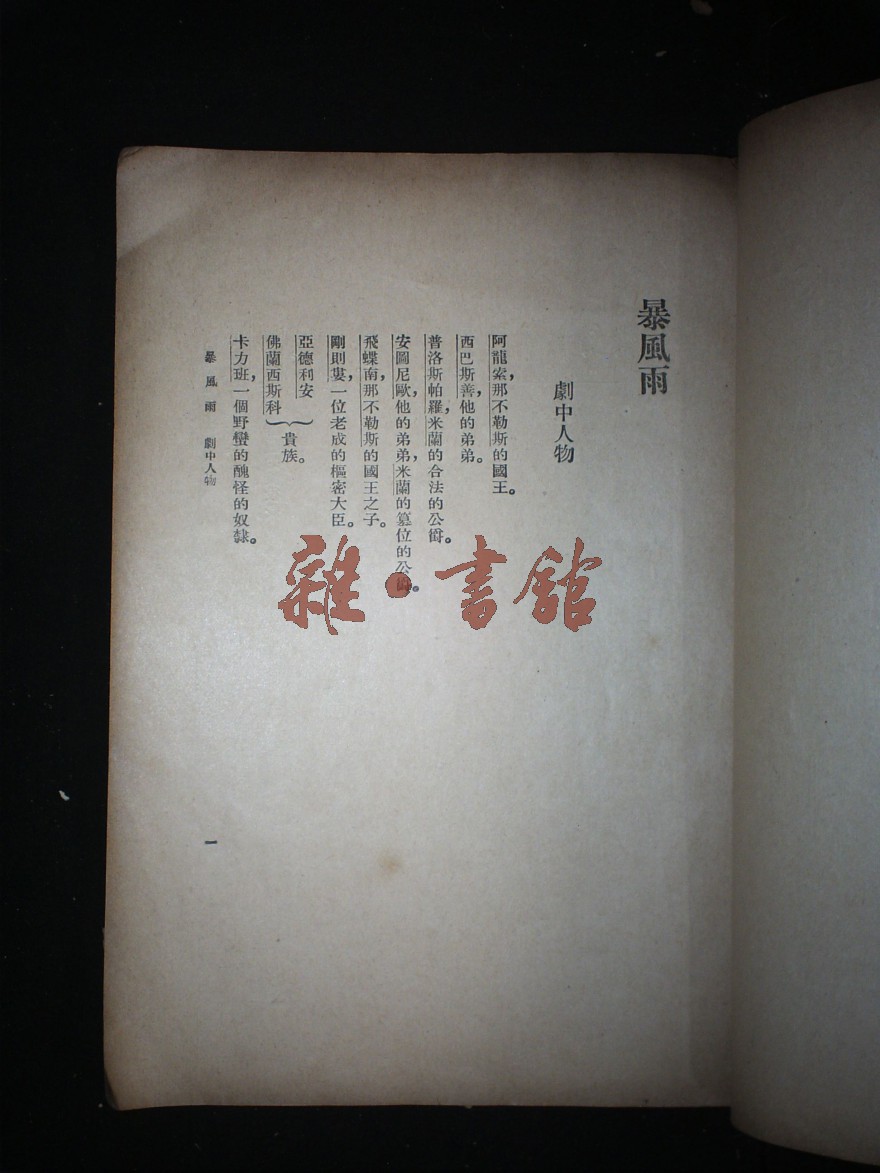 暴風雨
劇中人物
阿龍索，那不勒斯的國王。
西巴斯善，他的弟弟。
普洛斯帕羅，米蘭的合法的公爵。
安圖尼歐，他的弟弟，米蘭的篡位的公爵。
飛蝶南，那不勒斯的國王之子。
剛則婁，一位老成的樞密大臣。
亞德利安
佛蘭西斯科
貴族。
卡力班，一個野蠻的醜怪的奴隸。
暴風雨 劇中人物
一
雜·書館